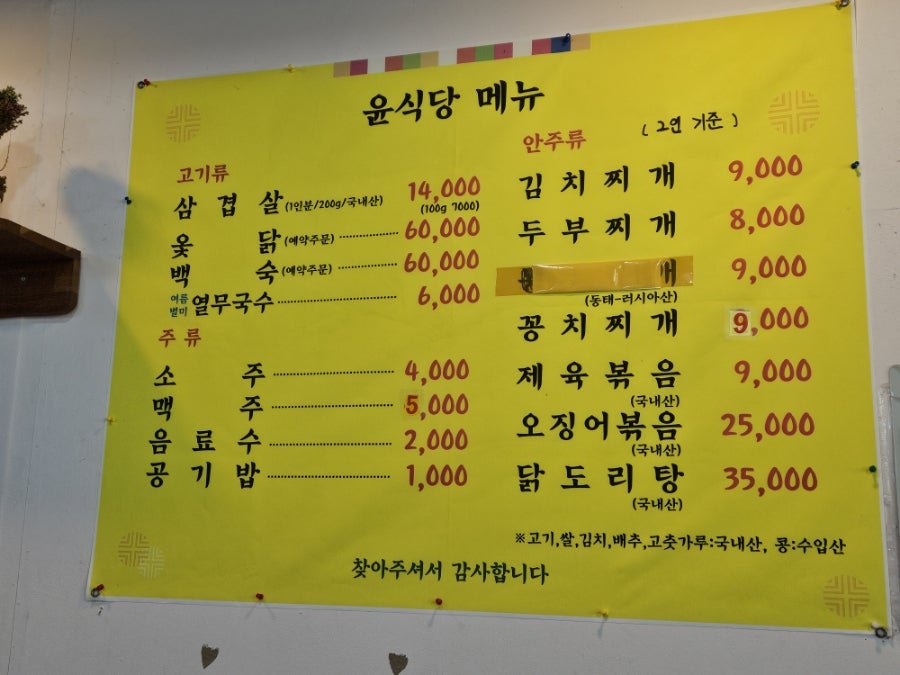 윤식당 메뉴
고기류
삼겹살 (1인분/200g/국내산) 14,000
(100g 7000)
옻닭 (예약주문) 60,000
백숙 (예약주문) 60,000
여름별미 열무국수 6,000
주류
소주 4,000
맥주 5,000
음료수 2,000
공기밥 1,000
안주류 ( 2인 기준 )
김치찌개 9,000
두부찌개 8,000
9,000
(동태-러시아산)
꽁치찌개 9,000
제육볶음 9,000
(국내산)
오징어볶음 25,000
(국내산)
닭도리탕 35,000
(국내산)
※고기,쌀,김치,배추,고춧가루:국내산, 콩:수입산
찾아주셔서 감사합니다